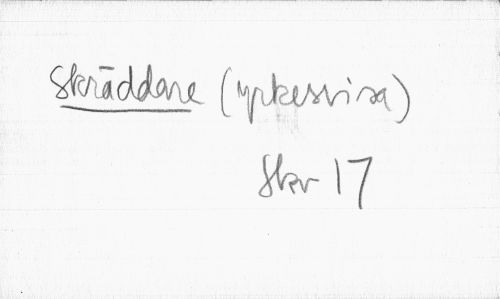 Skräddare (yrkesvisa)
Skr 17